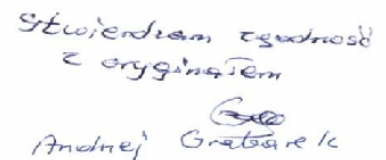 Stwierdzam zgodność
z oryginałem
Andrzej Grabarek